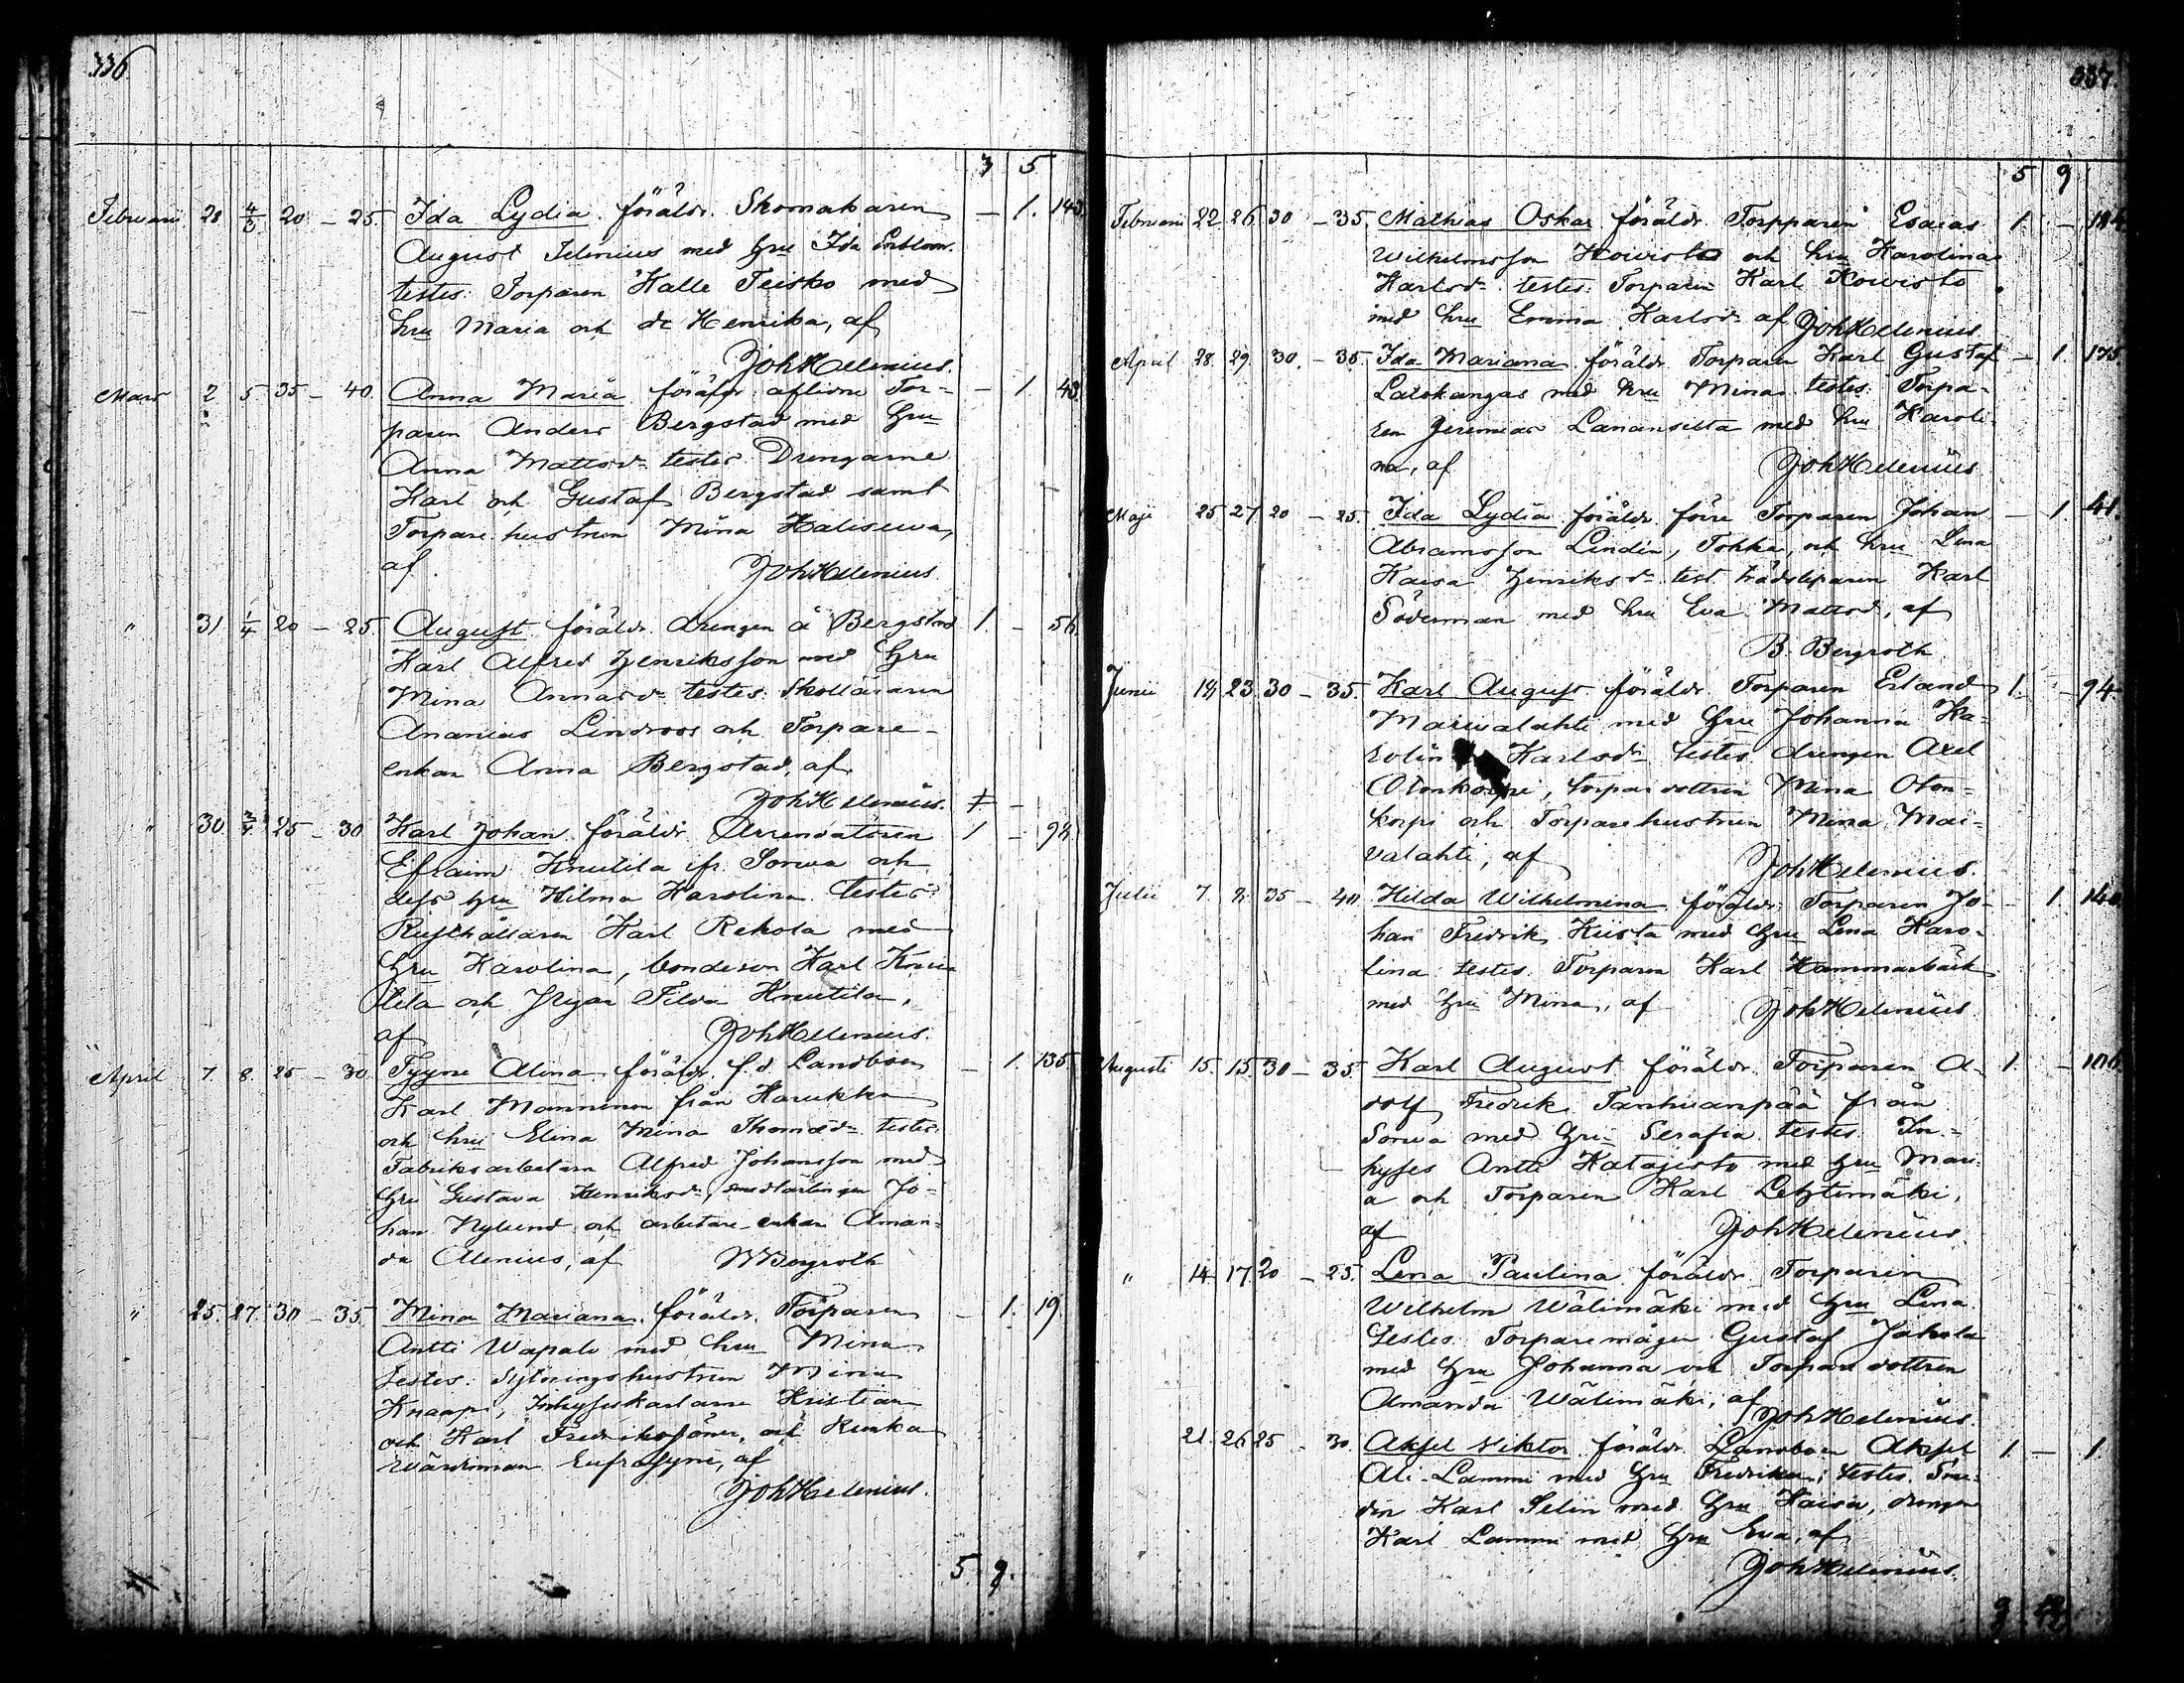 336.
3 5
Februari 28 4/3 20 - 25. Ida Lydia. föräldr. Skomakaren - 1. 143.
August Selenius med hru Ida
testes: Torparen Kalle Teisko med
hru Maria och de Henrika, af
JohHelenius.
Mars 2 5 35 - 40. Anna Maria föräldr: aflidne Tor- - 1. 43.
paren Anders Bergstad med hru
Anna Mattsdr testes Drengarne
Karl och Gustaf Bergstad samt
Torpare hustrun Mina Halisewa,
af JohHelenius.
" 31 1/4 20 - 25 August föräldr. drengen å Bergstad 1. - 56.
Karl Alfred Henriksson med hru
Mina Annasdr testes: Skolläraren
Ananias Lindroos och Torpare-
enkan Anna Bergstad, af
JohHelenius.
" 30. 3/4 25 - 30 Karl Johan föräldr. Arrendatoren 1 - 94
Efraim Knutila fr. Sorwa och
dess hru Hilma Karolina. testes:
Rusthållaren Karl Rekola med
hru Karolina, bondeson Karl Knu-
tila och Pigan Tilda Knutila,
af JohHelenius.
April 7. 8. 25 - 30. Tyyne Alina. föräldr. f.d. Landboen - 1. 135.
Karl Manninen från Harukka
och hru Elina Mina Thomasdr testes.
Fabriksarbetarn Alfred Johansson med
hru Gustava Henriksdr, smedlärlingen Jo-
han Nylund och arbetare-enkan Aman-
da Alenius, af B Bergroth
" 25. 27. 30 - 35. Mina Mariana. föräldr. Torparen - 1. 19.
Antti Wapalo med hru Mina
testes: Sytningshustrun Mina
Knaapi, Inhyseskarlarne Kristian
och Karl Fredrikssöner, och
Eufrosyne, af
JohHelenius.
5. 9.
337.
5 9
Februari 22. 26. 30 - 35. Mathias Oskar föräldr. Torpparen Esaias 1. - 184.
Wilhelmsson Kowisto och hru Karolina
Karlsdr testes. Torparen Karl Kowisto
med hru Emma Karlsdr af JohHelenius
April 28. 29. 30. - 35. Ida Mariana föräldr. Torparen Karl Gustaf - 1. 175.
Latokangas med hru Mina. testes. Torpa-
ren Jeremias Lanansilta med hru Karoli-
na, af JohHelenius
Maji 25 27 20 - 25. Ida Lydia föräldr. förre Torparen Johan - 1. 41.
Abramsson Lindin, Tokka, och hru Lena
Kaisa Henriksdr test. Karl
Söderman med hru Eva Mattsd, af
B. Bergroth
Junii 19. 23. 30 - 35. Karl August föräldr. Torparen Erland 1. - 94.
Maiwalahti med hru Johanna Ka-
rolin Karlsdr testes. drengen Axel
Otonkorpi, torpardottren Mina Oton-
korpi och Torparehustrun Mina Mai-
valahti, af JohHelenius.
Julii 7. 8. 35 - 40 Hilda Wilhelmina föräldr. Torparen Jo- - 1. 140
han Fredrik Kiista med hru Lena Karo-
lina testes. Torparen Karl Hammarbäck
med hru Mina, af JohHelenius
Augusti 15. 15. 30 - 35. Karl August föräldr. Torparen A- 1. - 106
dolf Fredrik Tanhuanpää från
Sorwa med hru Serafia testes. In-
hyses Antti Katajisto med hru Mari-
a och Torparen Karl Lehtimäki,
af JohHelenius.
" 14. 17. 20 - 25. Lena Paulina föräldr. Torparen
Wilhelm Wälimäki med hru Lena.
testes. Torparemågen Gustaf Jakola
med hru Johanna och Torparedottren
Amanda Wälimäki, af JohHelenius.
21. 26. 25 - 30. Aksel Viktor föräldr. Landboen Aksel 1. - 1.
Ali-Lammi med hru Fredrika; testes. Sme-
den Karl Selin med hru Kaisa, drengen
Karl Lammi med hru Eva, af
JohHelenius.
9 12